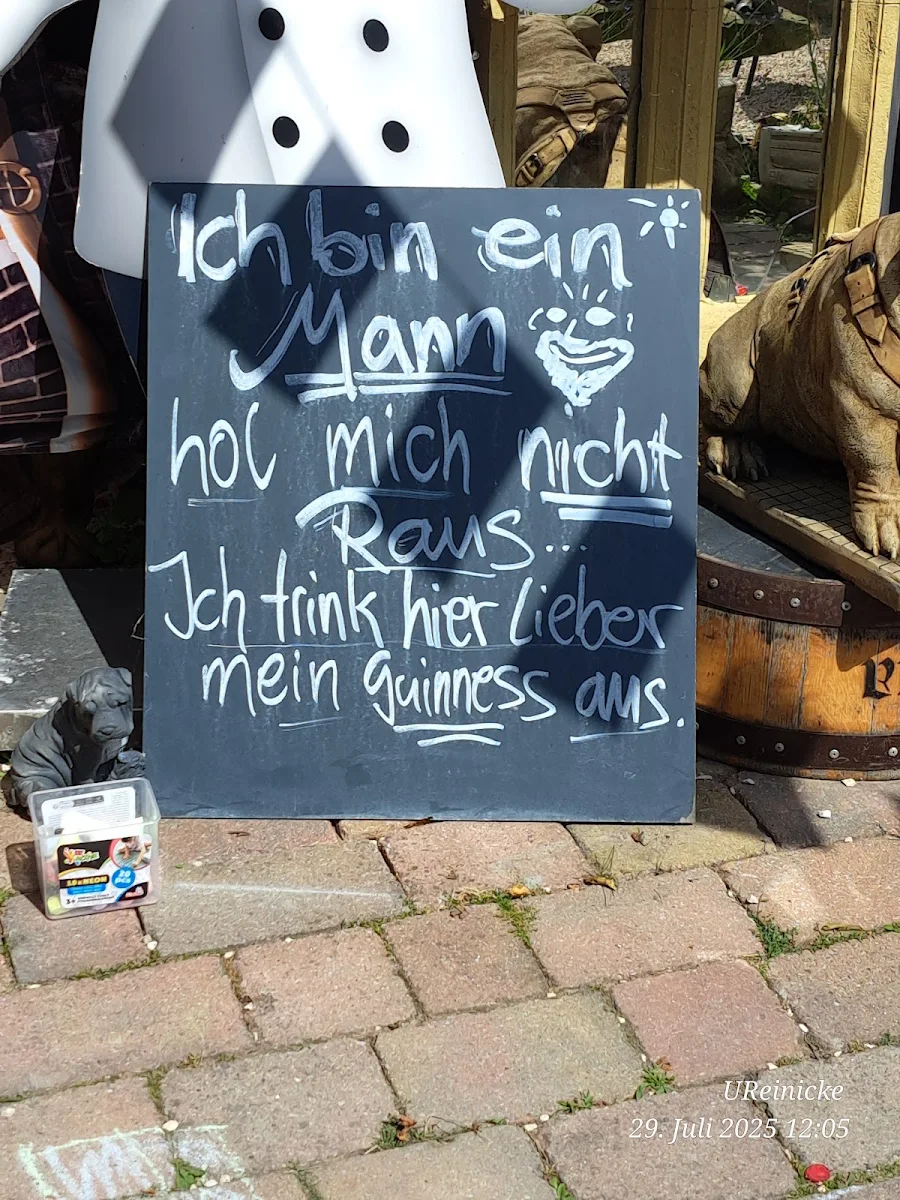 Ich bin ein
Mann
hol mich nicht
Raus...
Ich trink hier Lieber
mein guinness aus.
20
PCS
3+
UReinicke
29. Juli 2025 12:05